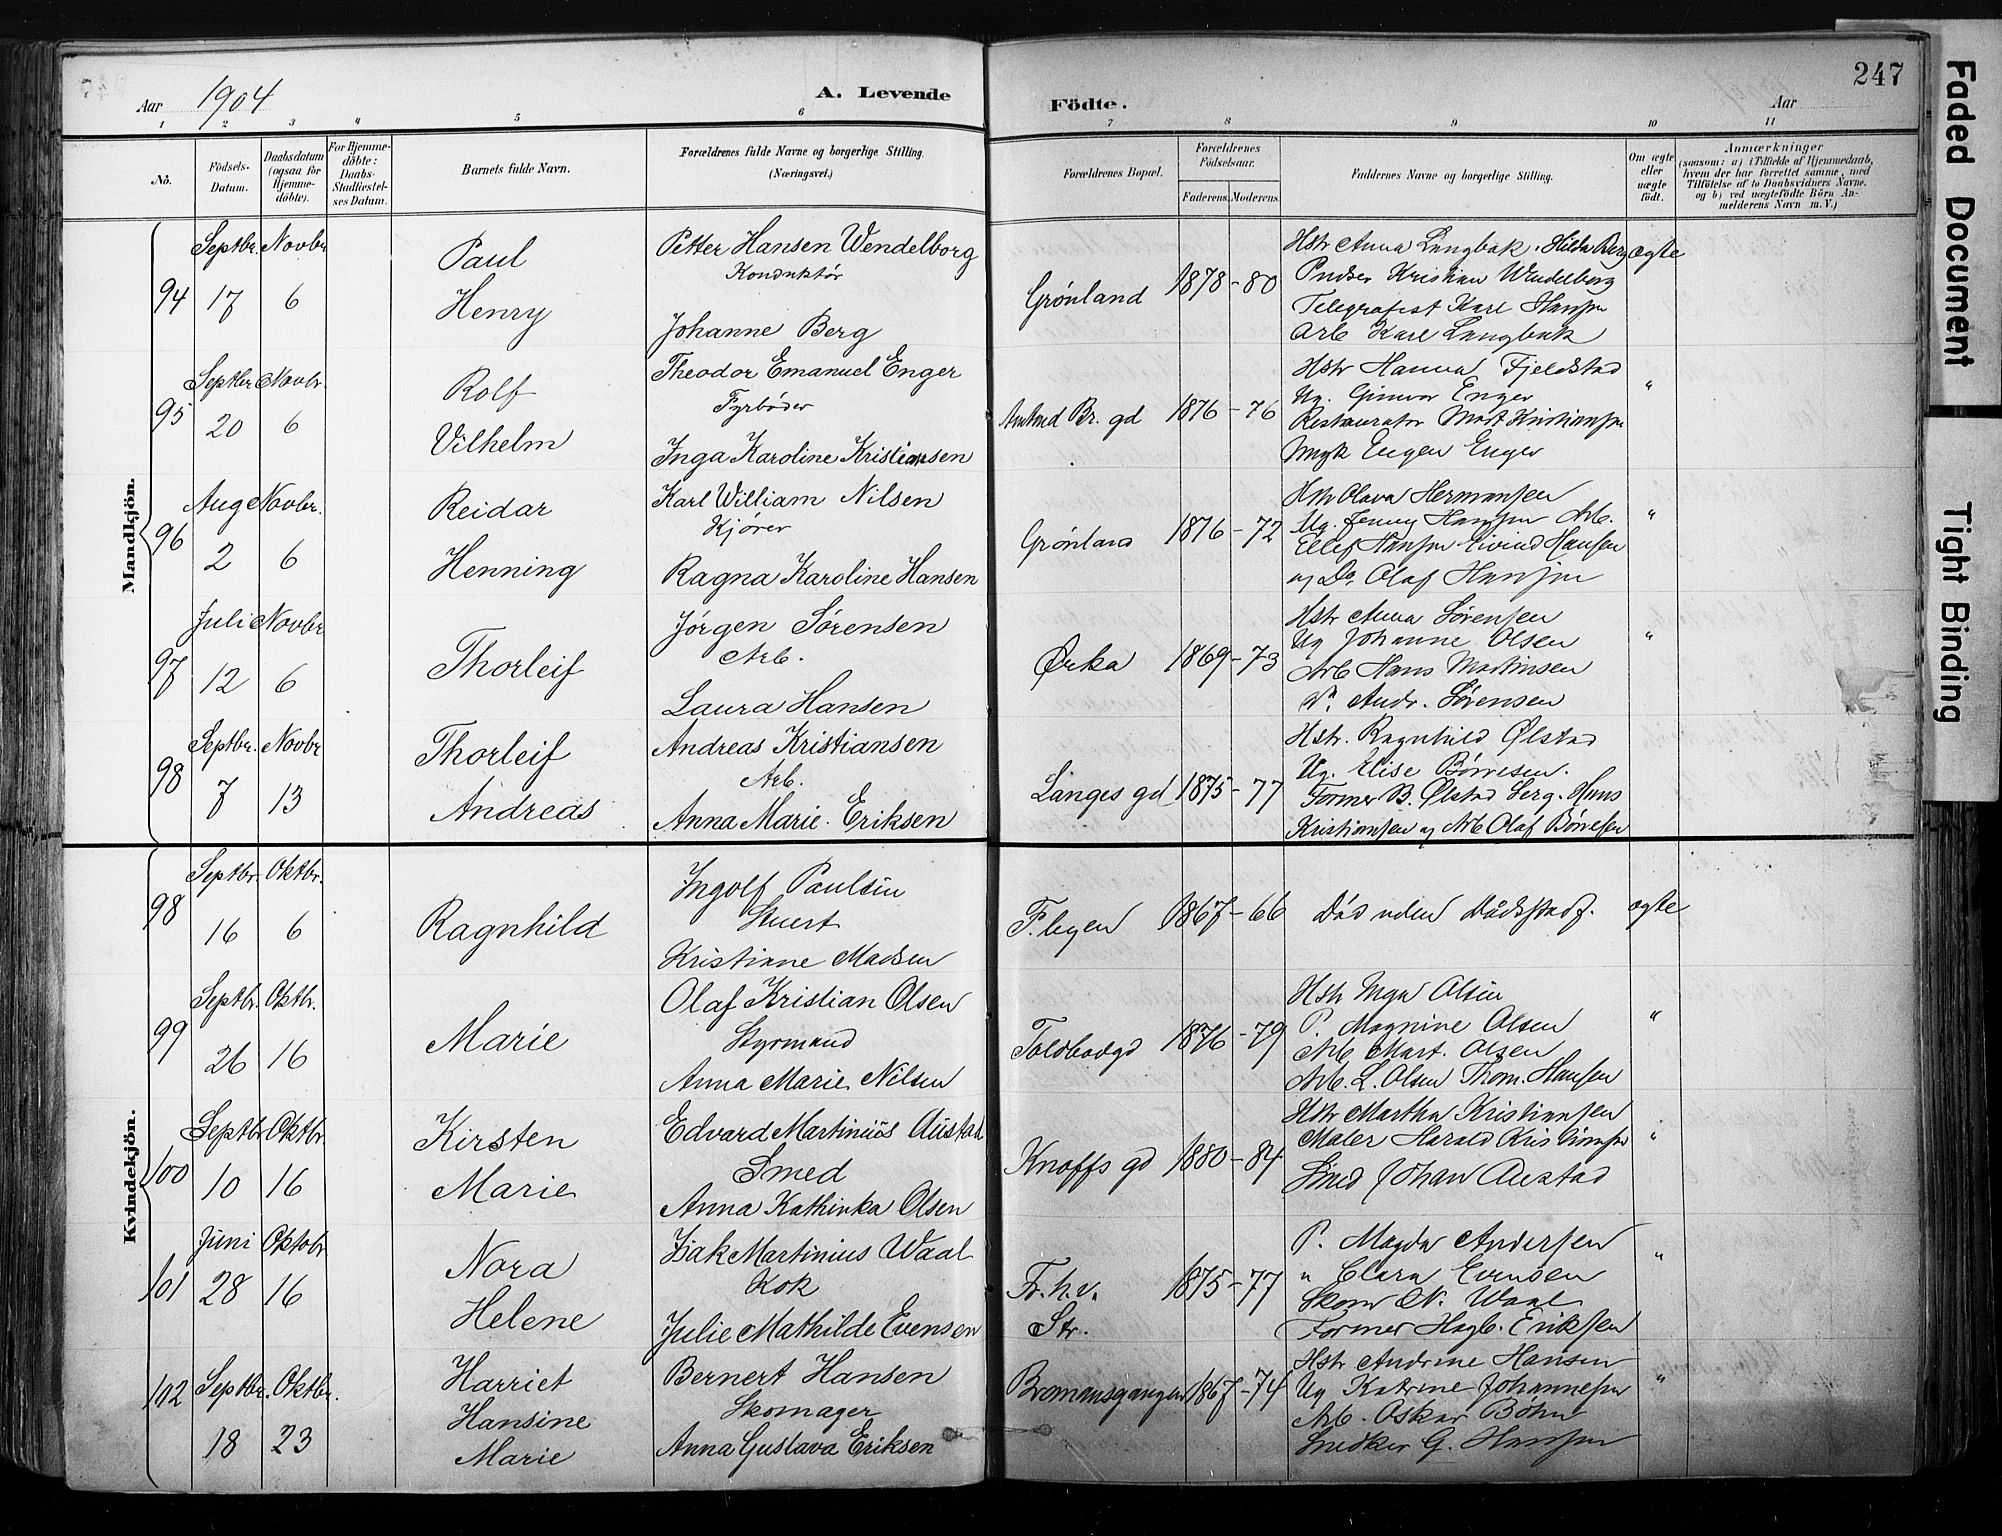 247
Aar 1904
A. Levende
Födte.
Aar
1 2 3 4 5 6 7 8 9 10 11
No.
Födsels-Datum.
Daabsdatum (ogsaa för Hjemmedöbte).
For Hjemmedöbte: Daabs-Stadfæstelses Datum.
Barnets fulde Navn.
Forældrenes fulde Navne og borgerlige Stilling.
(Næringsvei.)
Forældrenes Bopæl.
Forældrenes Födselsaar.
Faderens. Moderens.
Faddernes Navne og borgerlige Stilling.
Om ægte eller uægte födt.
Anmærkninger
(saasom: a) i Tilfælde af Hjemmedaab, hvem der har forrettet samme, med Tilföielse af to Daabsvidners Navne, og b) ved uægtefödte Börn Anmelderens Navn m. V.)
Mandkjön.
94
Septbr. Novbr.
17 6
Paul
Henry
Petter Hansen Wendelborg
Konduktør
Johanne Berg
Grønland
1878 - 80
Hstr Anna Langbak. Hilda Berg
Kristian Wendelborg
Telegrafist Karl Hansen
Arb Karl Langbak
ægte
95
Septbr. Novbr.
20 6
Rolf
Vilhelm
Theodor Emanuel Enger
Fyrbøder
Inga Karoline Kristiansen
Br. gd
1876 - 76
Hstr Hanna Fjeldstad
Ug. Gunvor Enger
Restauratør Mart Kristiansen
Eugen Enger
"
96
Aug Novbr.
2 6
Reidar
Henning
Karl William Nilsen
Kjører
Ragna Karoline Hansen
Grønland
1876 - 72
Hstr Olava Hermansen
Ug. Jenny Hansen Arb.
Ellef Hansen Eivind Hansen
og Do. Olaf Hansen
"
97
Juli Novbr
12 6
Thorleif
Jörgen Sørensen
Arb.
Laura Hansen
Ørka
1869 - 73
Hstr Anna Sørensen
Ug Johanne Olsen
Arb Hans Martinsen
Andr. Sørensen
"
98
Septbr. Novbr
7 13
Thorleif
Andreas
Andreas Kristiansen
Arb.
Anna Marie Eriksen
Langes gd
1875 - 77
Hstr. Ragnhild Ølstad
Ug. Elise Børresen.
Former B. Ølstad Serg. Hans
Kristiansen og Arb Olaf Børresen
Kvindekjön.
98
Septbr. Oktbr.
16 6
Ragnhild
Ingolf Paulsen
Stuert
Kristiane Madsen
F. byen
1867 - 66
Död uden Dådsstadf.
ægte
99
Septbr. Oktbr.
26 16
Marie
Olaf Kristian Olsen
Styrmand
Anna Marie Nilsen
Toldbodgd
1876 - 79
Hstr Inga Olsen
P. Magnine Olsen
Arb Mart. Olsen
Arb. L. Olsen Thom. Hansen
"
100
Septbr Oktbr.
10 16
Kirsten
Marie
Edvard Martinius Austad
Smed
Anna Kathinka Olsen
Knoffs gd
1880 - 84
Hstr Martha Kristiansen
Maler Harald Kristiansen
Smed Johan Austad
"
101
Juni Oktobr
28 16
Nora
Helene
Isak Martinius Waal
Kok
Julie Mathilde Evensen
Fr. h. v.
Str.
1875 - 77
P. Magda Andersen
" Clara Evensen
Skom N. Waal
Former Hagb. Eriksen
"
102
Septbr. Oktbr.
18 23
Harriet
Hansine
Marie
Bernert Hansen
Skomager
Anna Gustava Eriksen
Bromansgangen
1867 - 74
Hstr Andrine Hansen
Ug Katrine Johannesen
Arb. Oskar Böhn
Snedker G. Hansen
"
Faded Document
Tight Binding